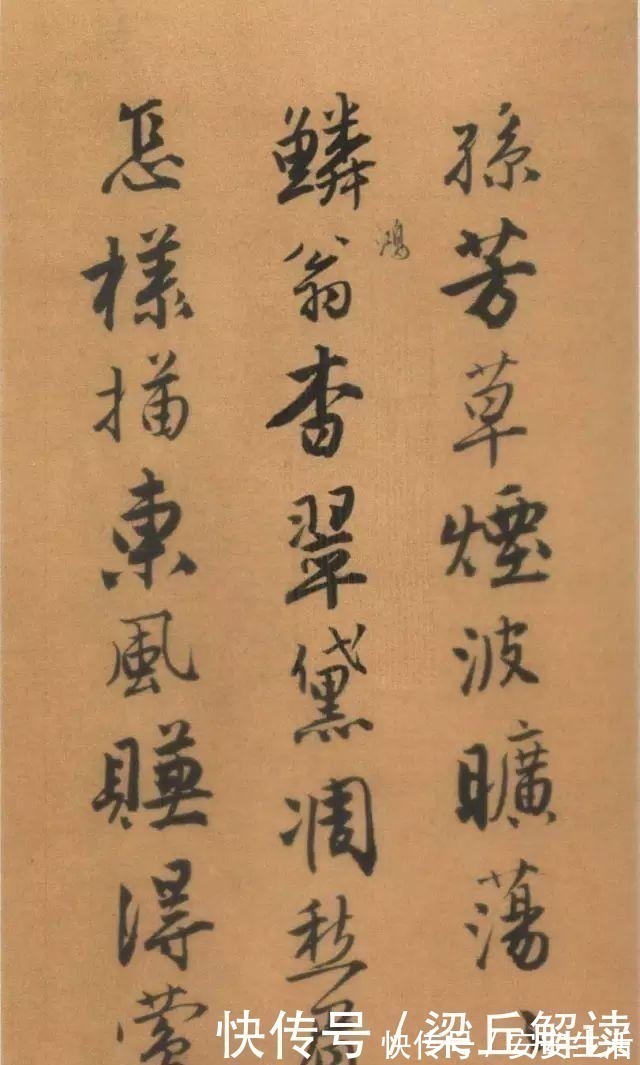 孫芳草煙波曠蕩
鱗翁杳翠黛凋愁
鴻
怎樣描東風賺得鶯
快传号 / 梁丘解读
快传号 /